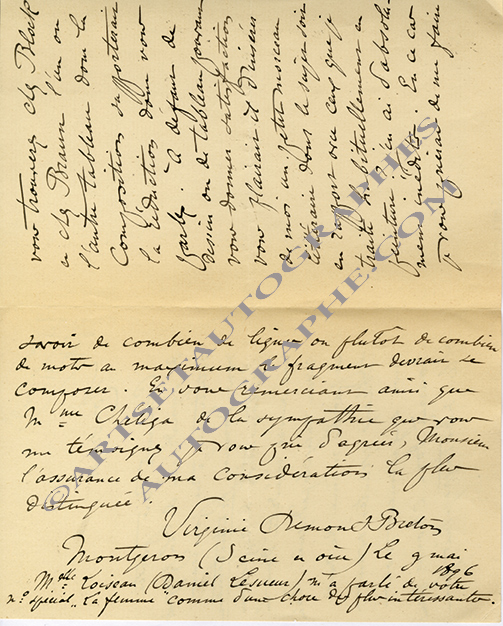 vous trouverez chez Block
ou chez Braun l'un ou
l'autre tableau dont la
composition supporterait
la réduction dont vous
parlez. À défaut de
dessin ou de tableau pouvant
vous donner satisfaction
vous plairait il d'insérer
de moi un petit morceau
littéraire dont le sujet soit
en rapport avec ceux que je
traite habituellement en
peinture ? j'en ai d'absolu-
ment inédits. En ce cas
je vous prierai de me faire
savoir de combien de lignes ou plutôt de combien
de mots au maximum ce fragment devrait se
composer. En vous remerciant ainsi que
Mme Chéliga de la sympathie que vous
me témoignez je vous prie d'agréer, Monsieur
l'assurance de ma considération la plus
distinguée.
Virginie Demont-Breton
Montgeron (Seine et oise) Le 9 mai
1896
Melle Loiseau (Daniel Lesueur) m'a parlé de votre
no spécial "La femme" comme d'une chose des plus intéressantes.
©ARTSETAUTOGRAPHES
AUTOGRAPHE.COM